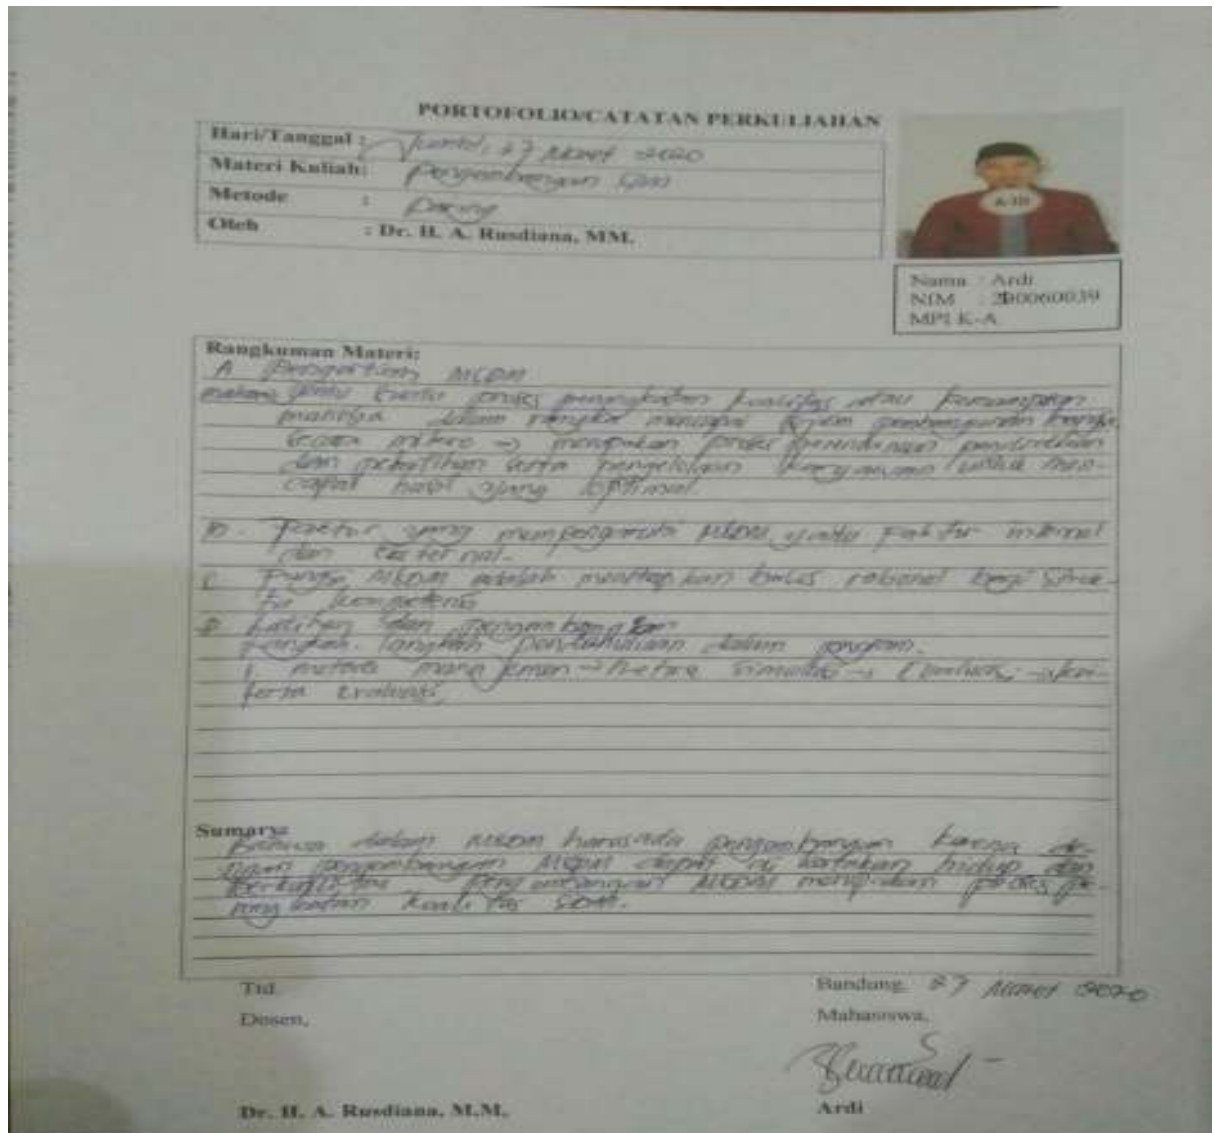 PORTOFOLIO/CATATAN PERKULIAHAN
Hari/Tanggal : Jum'at, 27 Maret 2020
Materi Kuliah: Pengembangan SDM
Metode : Daring
Oleh : Dr. H. A. Rusdiana, MM.
A-10
Nama : Ardi
NIM : 2100060039
MPI K-A
Rangkuman Materi:
A Pengertian MSDM
suatu proses peningkatan kualitas atau kemampuan
manusia dalam rangka mencapai tujuan pembangunan bangsa.
secara mikro → merupakan proses perencanaan pendidikan
dan pelatihan serta pengelolaan karyawan untuk men-
capai hasil yang optimal.
B. Faktor yang mempengaruhi MSDM yaitu Faktor internal
dan external.
C Fungsi MSDM adalah menetapkan rational bagi
kompetensi
D Latihan dan pengembangan
Langkah-langkah pendahuluan dalam program.
1 metode manajemen → metode simulasi →
serta evaluasi.
Sumary:
Bahwa dalam MSDM harus ada pengembangan karena de-
ngan pengembangan MSDM dapat di katakan hidup dan
berkualitas pengembangan MSDM merupakan proses pe-
ningkatan kualitas SDM.
Ttd Bandung, 27 Maret 2020
Dosen, Mahasiswa,
Dr. H. A. Rusdiana, M.M. Ardi